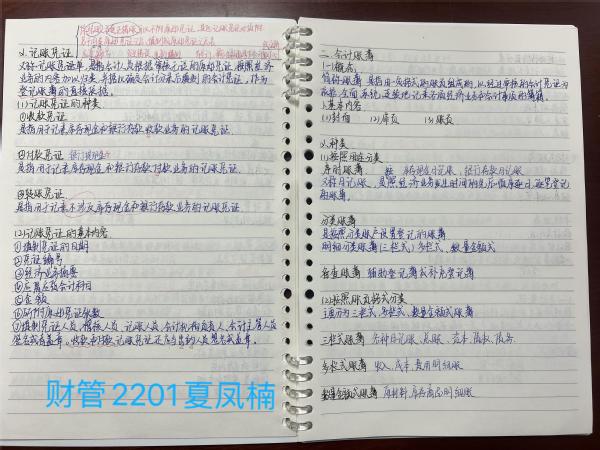 2.记账凭证
又称记账凭证单,是指会计人员根据审核无误的原始凭证,按照经济
业务的内容加以归类,并据以确定会计分录后填制的会计凭证,作为
登记账簿的直接依据。
(1)记账凭证的种类
①收款凭证
是指用于记录库存现金和银行存款收款业务的记账凭证
②付款凭证
是指用于记录库存现金和银行存款付款业务的记账凭证。
③转账凭证
是指用于记录不涉及库存现金和银行存款业务的记账凭证。
(2)记账凭证的基本内容
①填制凭证的日期
②凭证编号
③经济业务摘要
④应借应贷会计科目
⑤金额
⑥所附原始凭证张数
⑦填制凭证人员、稽核人员、记账人员、会计机构负责人、会计主管人员
签名或者盖章,收款和付款记账凭证还应当由出纳人员签名或盖章。
财管2201夏凤楠
二、会计账簿
(一)概念
简称账簿,是指由一定格式的账页组成的,以经过审核的会计凭证为
依据,全面、系统、连续地记录各项经济业务和会计事项的簿籍。
1.基本内容
(1)封面 (2)扉页 (3)账页
2.种类
(1)按照用途分类
序时账簿 库存现金日记账,银行存款日记账
又称日记账,是按照经济业务发生时间的先后顺序逐日、逐笔登记
的账簿。
分类账簿
是按照分类账户设置登记的账簿
明细分类账簿(三栏式)多栏式、数量金额式
备查账簿 辅助登记簿或补充登记簿
(2)按照账页格式分类
主要分为三栏式、多栏式、数量金额式账簿
三栏式账簿 各种日记账、总账、资本、债权、债务
多栏式账簿 收入、成本、费用明细账
数量金额式账簿 原材料、库存商品明细账